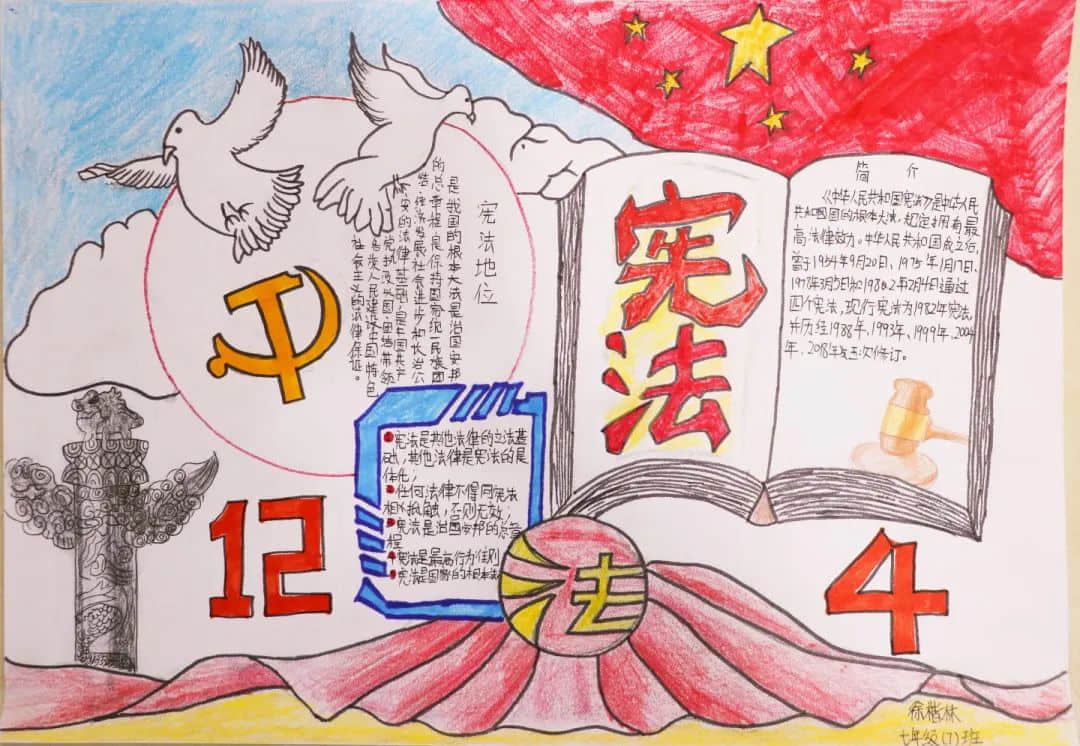 宪法地位
是我国的根本大法是治国安邦
的总章程是保持国家统一民族团
结、经济发展社会进步和长治
安的法律基础是中国共产
党执政兴国、团结带领
各族人民建设中国特色
社会主义的法律保证。
宪法
简 介
《中华人民共和国宪法》是中华人民
共和国国的根本大法,规定拥有最
高法律效力。中华人民共和国成立后,
曾于1954年9月20日、1975年1月17日、
1978年3月5日和1982年12月4日通过
四个宪法,现行宪法为1982年宪法,
并历经1988年、1993年、1999年、2004
年、2018年五次修订。
宪法是其他法律的立法基
础,其他法律是宪法的具
体化;
任何法律不得同宪法
相抵触,否则无效;
宪法是治国安邦的总章
程
宪法是最高行为准则
宪法是国家的根本法
12
法
4
徐楷林
七年级(7)班